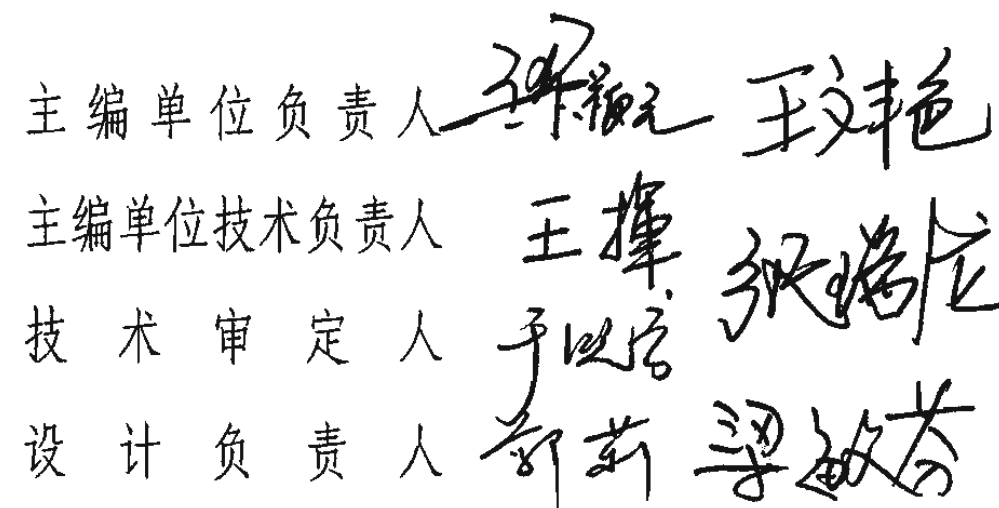 主编单位负责人 王文艳
主编单位技术负责人 王挥
技术审定人
设计负责人 郭莉 梁敏芬